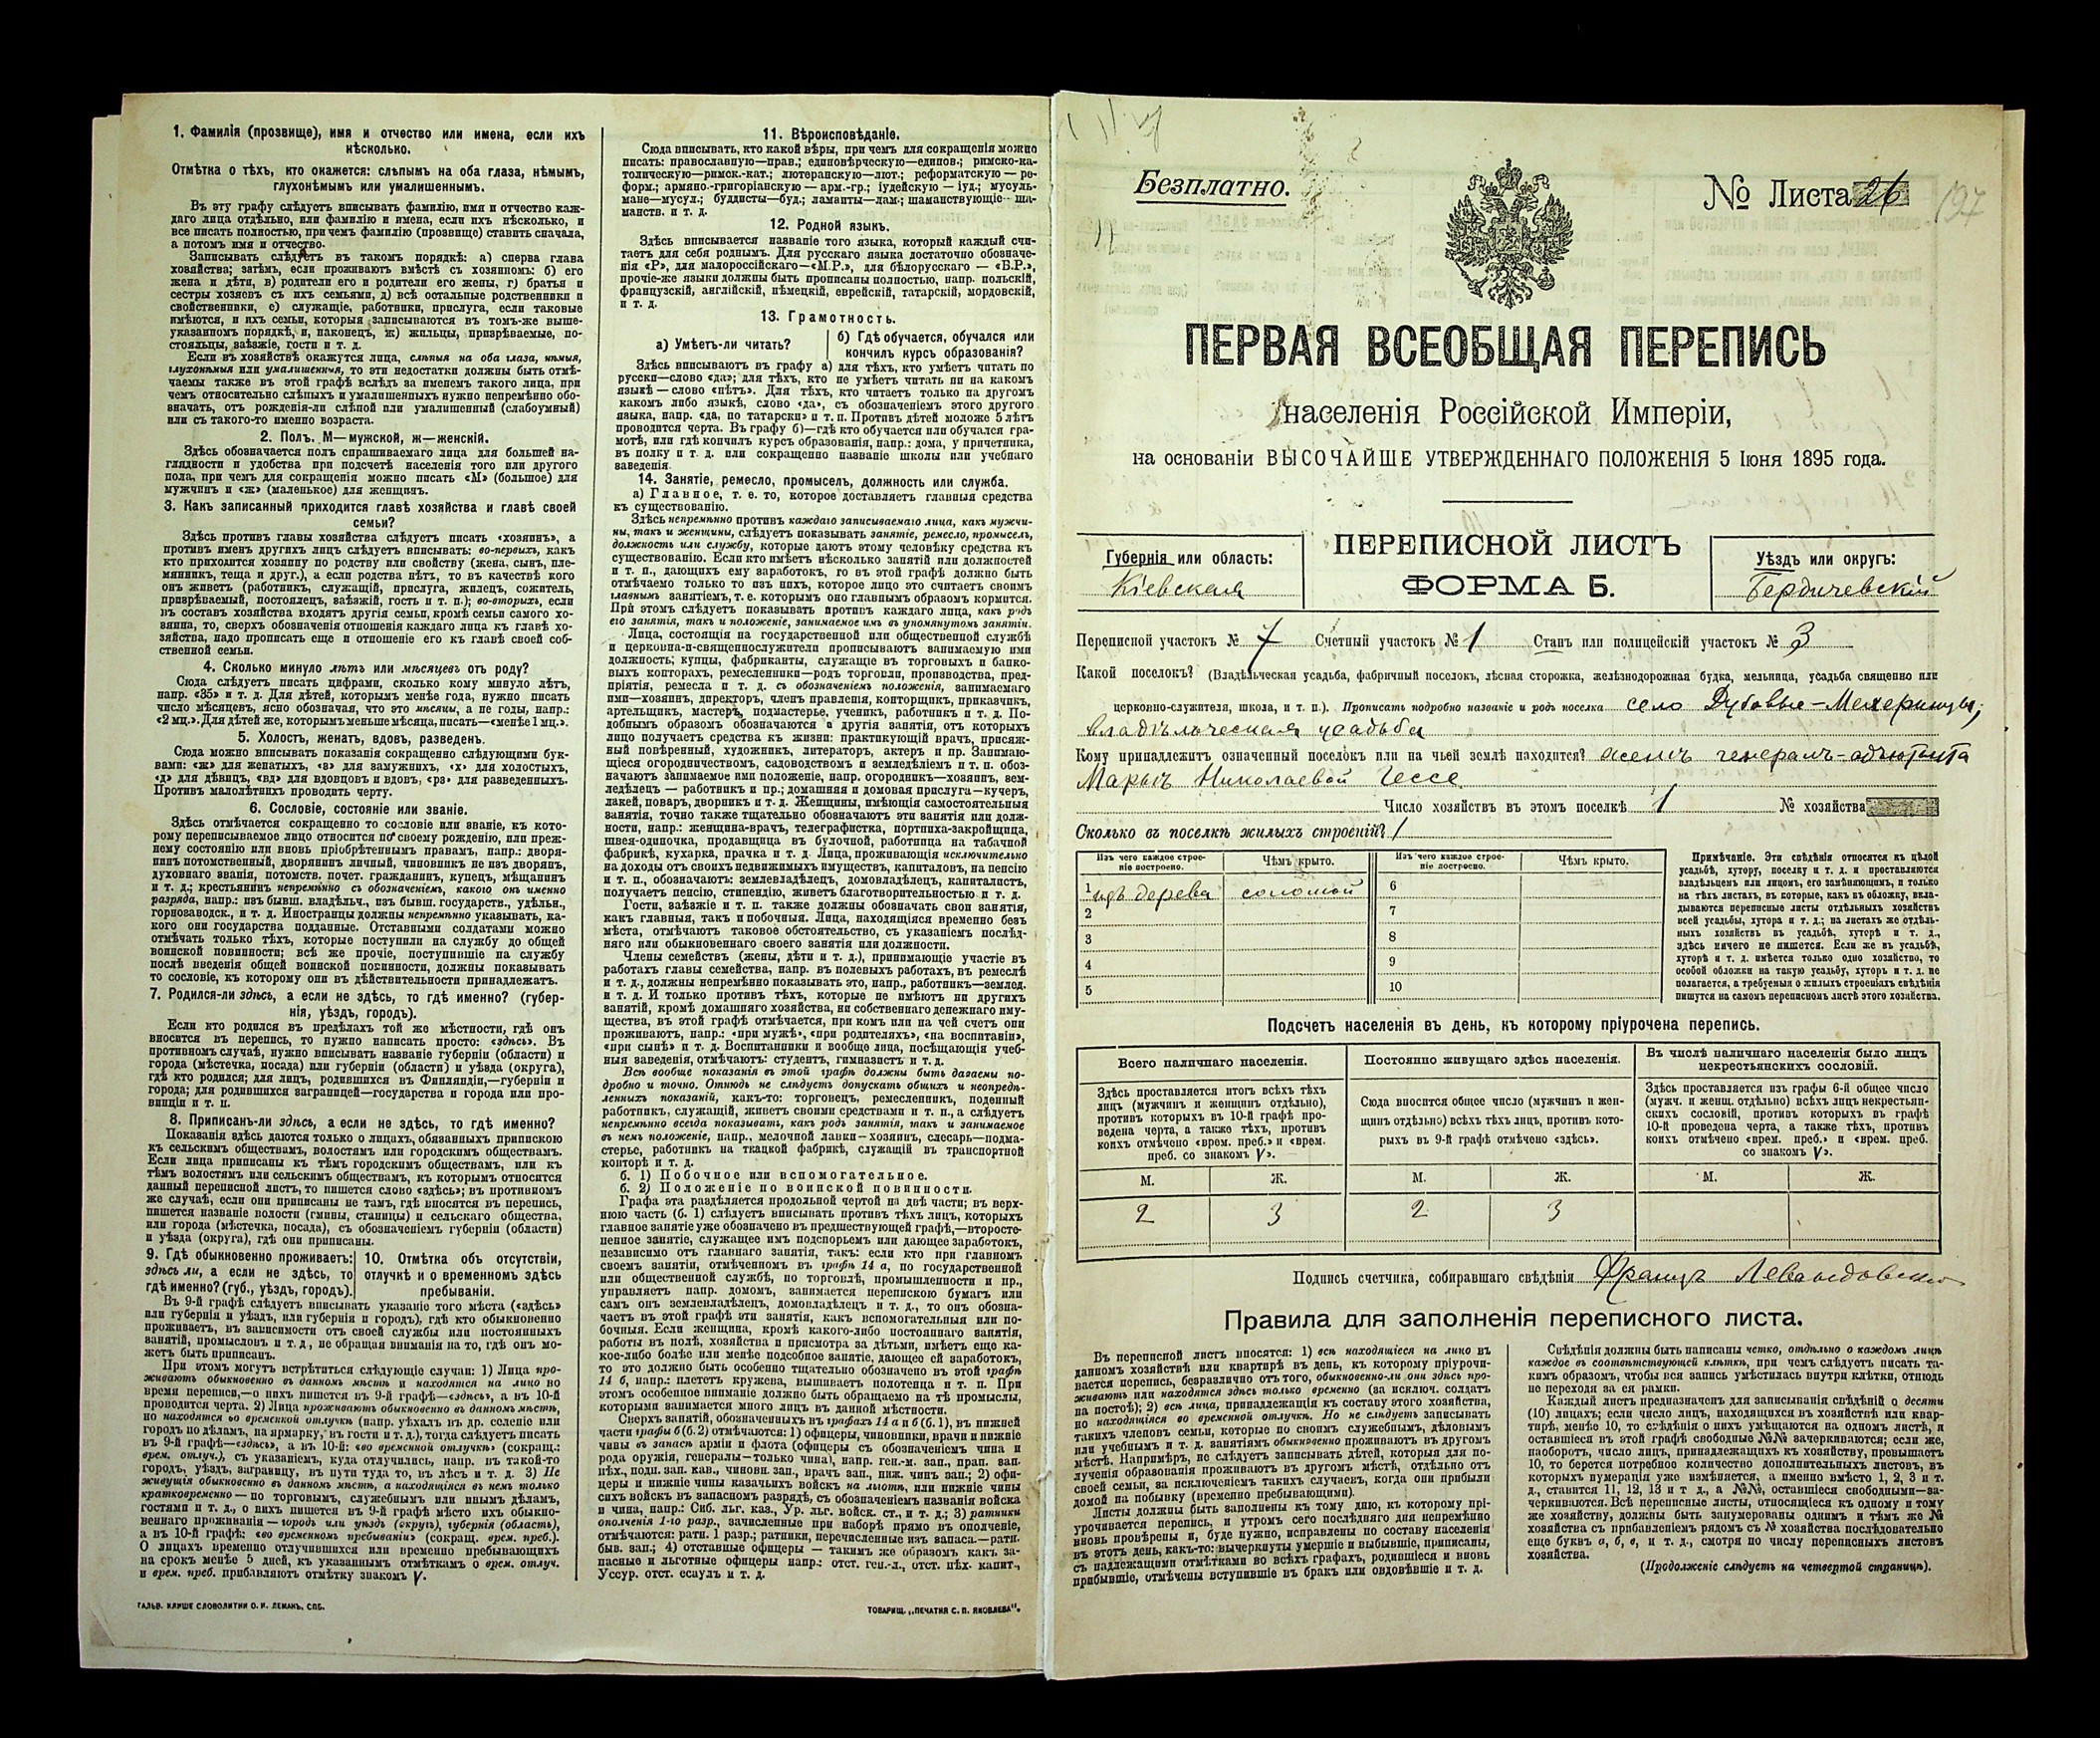 1. Фамилія (прозвище), имя и отчество или имена, если ихъ
нѣсколько.
Отмѣтка о тѣхъ, кто окажется: слѣпымъ на оба глаза, нѣмымъ,
глухонѣмымъ или умалишеннымъ.
Въ эту графу слѣдуетъ вписывать фамилію, имя и отчество каж-
даго лица отдѣльно, или фамилію и имена, если ихъ нѣсколько, и
все писать полностью, при чемъ фамилію (прозвище) ставить сначала,
а потомъ имя и отчество.
Записывать слѣдуетъ въ такомъ порядкѣ: а) сперва глава
хозяйства; затѣмъ, если проживаютъ вмѣстѣ съ хозяиномъ: б) его
жена и дѣти, в) родители его и родители его жены, г) братья и
сестры хозяевъ съ ихъ семьями, д) всѣ остальные родственники и
свойственники, е) служащіе, работники, прислуга, если таковые
имѣются, и ихъ семьи, которыя записываются въ томъ-же выше-
указанномъ порядкѣ, и, наконецъ, ж) жильцы, призрѣваемые, по-
стояльцы, заѣзжіе, гости и т. д.
Если въ хозяйствѣ окажутся лица, слѣпыя на оба глаза, нѣмыя,
глухонѣмыя или умалишенныя, то эти недостатки должны быть отмѣ-
чаемы также въ этой графѣ вслѣдъ за именемъ такого лица, при
чемъ относительно слѣпыхъ и умалишенныхъ нужно непремѣнно обо-
значать, отъ рожденія-ли слѣпой или умалишенный (слабоумный)
или съ такого-то именно возраста.
2. Полъ. М—мужской, ж—женскій.
Здѣсь обозначается полъ спрашиваемаго лица для большей на-
глядности и удобства при подсчетѣ населенія того или другого
пола, при чемъ для сокращенія можно писать «М» (большое) для
мужчинъ и «ж» (маленькое) для женщинъ.
3. Какъ записанный приходится главѣ хозяйства и главѣ своей
семьи?
Здѣсь противъ главы хозяйства слѣдуетъ писать «хозяинъ», а
противъ именъ другихъ лицъ слѣдуетъ вписывать: во-первыхъ, какъ
кто приходится хозяину по родству или свойству (жена, сынъ, пле-
мянникъ, теща и друг.), а если родства нѣтъ, то въ качествѣ кого
онъ живетъ (работникъ, служащій, прислуга, жилецъ, сожитель,
призрѣваемый, постоялецъ, заѣзжій, гость и т. п.); во-вторыхъ, если
въ составъ хозяйства входятъ другія семьи, кромѣ семьи самого хо-
зяина, то, сверхъ обозначенія отношенія каждаго лица къ главѣ хо-
зяйства, надо прописать еще и отношеніе его къ главѣ своей соб-
ственной семьи.
4. Сколько минуло лѣтъ или мѣсяцевъ отъ роду?
Сюда слѣдуетъ писать цифрами, сколько кому минуло лѣтъ,
напр. «35» и т. д. Для дѣтей, которымъ менѣе года, нужно писать
число мѣсяцевъ, ясно обозначая, что это мѣсяцы, а не годы, напр.:
«2 мц.». Для дѣтей же, которымъ меньше мѣсяца, писать—«менѣе 1 мц.».
5. Холостъ, женатъ, вдовъ, разведенъ.
Сюда можно вписывать показанія сокращенно слѣдующими бук-
вами: «ж» для женатыхъ, «з» для замужнихъ, «х» для холостыхъ,
«д» для дѣвицъ, «вд» для вдовцовъ и вдовъ, «рз» для разведенныхъ.
Противъ малолѣтнихъ проводить черту.
6. Сословіе, состояніе или званіе.
Здѣсь отмѣчается сокращенно то сословіе или званіе, къ кото-
рому переписываемое лицо относится по своему рожденію, или преж-
нему состоянію или вновь пріобрѣтеннымъ правамъ, напр.: дворя-
нинъ потомственный, дворянинъ личный, чиновникъ не изъ дворянъ,
духовнаго званія, потомств. почет. гражданинъ, купецъ, мѣщанинъ
и т. д.; крестьянинъ непремѣнно съ обозначеніемъ, какого онъ именно
разряда, напр.: изъ бывш. владѣльч., изъ бывш. государств., удѣльн.,
горнозаводск., и т. д. Иностранцы должны непремѣнно указывать, ка-
кого они государства подданные. Отставными солдатами можно
отмѣчать только тѣхъ, которые поступили на службу до общей
воинской повинности; всѣ же прочіе, поступившіе на службу
послѣ введенія общей воинской повинности, должны показывать
то сословіе, къ которому они въ дѣйствительности принадлежатъ.
7. Родился-ли здѣсь, а если не здѣсь, то гдѣ именно? (губер-
нія, уѣздъ, городъ).
Если кто родился въ предѣлахъ той же мѣстности, гдѣ онъ
вносится въ перепись, то нужно написать просто: «здѣсь». Въ
противномъ случаѣ, нужно вписывать названіе губерніи (области) и
города (мѣстечка, посада) или губерніи (области) и уѣзда (округа),
гдѣ кто родился; для лицъ, родившихся въ Финляндіи,—губерніи и
города; для родившихся заграницей—государства и города или про-
винціи и т. п.
8. Приписанъ-ли здѣсь, а если не здѣсь, то гдѣ именно?
Показанія здѣсь даются только о лицахъ, обязанныхъ припискою
къ сельскимъ обществамъ, волостямъ или городскимъ обществамъ.
Если лица приписаны къ тѣмъ городскимъ обществамъ, или къ
тѣмъ волостямъ или сельскимъ обществамъ, къ которымъ относится
данный переписной листъ, то пишется слово «здѣсь»; въ противномъ
же случаѣ, если они приписаны не тамъ, гдѣ вносятся въ перепись,
пишется названіе волости (гмины, станицы) и сельскаго общества,
или города (мѣстечка, посада), съ обозначеніемъ губерніи (области)
и уѣзда (округа), гдѣ они приписаны.
9. Гдѣ обыкновенно проживаетъ:
здѣсь ли, а если не здѣсь, то
гдѣ именно? (губ., уѣздъ, городъ).
10. Отмѣтка объ отсутствіи,
отлучкѣ и о временномъ здѣсь
пребываніи.
Въ 9-й графѣ слѣдуетъ вписывать указаніе того мѣста («здѣсь»
или губернія и уѣздъ, или губернія и городъ), гдѣ кто обыкновенно
проживаетъ, въ зависимости отъ своей службы или постоянныхъ
занятій, промысловъ и т. д., не обращая вниманія на то, гдѣ онъ мо-
жетъ быть приписанъ.
При этомъ могутъ встрѣтиться слѣдующіе случаи: 1) Лица про-
живаютъ обыкновенно въ данномъ мѣстѣ и находятся на лицо во
время переписи,—о нихъ пишется въ 9-й графѣ—«здѣсь», а въ 10-й
проводится черта. 2) Лица проживаютъ обыкновенно въ данномъ мѣстѣ,
но находятся во временной отлучкѣ (напр. уѣхалъ въ др. селеніе или
городъ по дѣламъ, на ярмарку, въ гости и т. д.), тогда слѣдуетъ писать
въ 9-й графѣ—«здѣсь», а въ 10-й: «во временной отлучкѣ» (сокращ.:
врем. отлуч.), съ указаніемъ, куда отлучились, напр. въ такой-то
городъ, уѣздъ, заграницу, въ пути туда то, въ лѣсъ и т. д. 3) Не
живущія обыкновенно въ данномъ мѣстѣ, а находящіяся въ немъ только
кратковременно — по торговымъ, служебнымъ или инымъ дѣламъ,
гостями и т. д., о нихъ пишется въ 9-й графѣ мѣсто ихъ обыкно-
веннаго проживанія — городъ или уѣздъ (округъ), губернія (область),
а въ 10-й графѣ: «во временномъ пребываніи» (сокращ. врем. преб.).
О лицахъ временно отлучившихся или временно пребывающихъ
на срокъ менѣе 5 дней, къ указаннымъ отмѣткамъ о врем. отлуч.
и врем. преб. прибавляютъ отмѣтку знакомъ V.
ГАЛЬВ. КЛИШЕ СЛОВОЛИТНИ О. И. ЛЕМАНЪ, СПБ.
11. Вѣроисповѣданіе.
Сюда вписывать, кто какой вѣры, при чемъ для сокращенія можно
писать: православную—прав.; единовѣрческую—единов.; римско-ка-
толическую—римск.-кат.; лютеранскую—лют.; реформатскую — ре-
форм.; армяно.-григоріанскую — арм.-гр.; іудейскую — іуд.; мусуль-
мане—мусул.; буддисты—буд.; ламаиты—лам.; шаманствующіе—ша-
манств. и т. д.
12. Родной языкъ.
Здѣсь вписывается названіе того языка, который каждый счи-
таетъ для себя роднымъ. Для русскаго языка достаточно обозначе-
нія «Р», для малороссійскаго—«М.Р.», для бѣлорусскаго — «Б.Р.»,
прочіе-же языки должны быть прописаны полностью, напр. польскій,
французскій, англійскій, нѣмецкій, еврейскій, татарскій, мордовскій,
и т. д.
13. Грамотность.
а) Умѣетъ-ли читать?
б) Гдѣ обучается, обучался или
кончилъ курсъ образованія?
Здѣсь вписываютъ въ графу а) для тѣхъ, кто умѣетъ читать по
русски—слово «да»; для тѣхъ, кто не умѣетъ читать ни на какомъ
языкѣ — слово «нѣтъ». Для тѣхъ, кто читаетъ только на другомъ
какомъ либо языкѣ, слово «да», съ обозначеніемъ этого другого
языка, напр. «да, по татарски» и т. п. Противъ дѣтей моложе 5 лѣтъ
проводится черта. Въ графу б)—гдѣ кто обучается или обучался гра-
мотѣ, или гдѣ кончилъ курсъ образованія, напр.: дома, у причетника,
въ полку и т. д. или сокращенно названіе школы или учебнаго
заведенія.
14. Занятіе, ремесло, промыселъ, должность или служба.
а) Главное, т. е. то, которое доставляетъ главныя средства
къ существованію.
Здѣсь непремѣнно противъ каждаго записываемаго лица, какъ мужчи-
ны, такъ и женщины, слѣдуетъ показывать занятіе, ремесло, промыселъ,
должность или службу, которые даютъ этому человѣку средства къ
существованію. Если кто имѣетъ нѣсколько занятій или должностей
и т. п., дающихъ ему заработокъ, то въ этой графѣ должно быть
отмѣчаемо только то изъ нихъ, которое лицо это считаетъ своимъ
главнымъ занятіемъ, т. е. которымъ оно главнымъ образомъ кормится.
При этомъ слѣдуетъ показывать противъ каждаго лица, какъ родъ
его занятія, такъ и положеніе, занимаемое имъ въ упомянутомъ занятіи.
Лица, состоящія на государственной или общественной службѣ
и церковно-и-священнослужители прописываютъ занимаемую ими
должность; купцы, фабриканты, служащіе въ торговыхъ и банко-
выхъ конторахъ, ремесленники—родъ торговли, производства, пред-
пріятія, ремесла и т. д. съ обозначеніемъ положенія, занимаемаго
ими—хозяинъ, директоръ, членъ правленія, конторщикъ, приказчикъ,
артельщикъ, мастеръ, подмастерье, ученикъ, работникъ и т. д. По-
добнымъ образомъ обозначаются и другія занятія, отъ которыхъ
лицо получаетъ средства къ жизни: практикующій врачъ, присяж-
ный повѣренный, художникъ, литераторъ, актеръ и пр. Занимаю-
щіеся огородничествомъ, садоводствомъ и земледѣліемъ и т. п. обо-
значаютъ занимаемое ими положеніе, напр. огородникъ—хозяинъ, зем-
ледѣлецъ — работникъ и пр.; домашняя и домовая прислуга—кучеръ,
лакей, поваръ, дворникъ и т. д. Женщины, имѣющія самостоятельныя
занятія, точно также тщательно обозначаютъ эти занятія или долж-
ности, напр.: женщина-врачъ, телеграфистка, портниха-закройщица,
швея-одиночка, продавщица въ булочной, работница на табачной
фабрикѣ, кухарка, прачка и т. д. Лица, проживающія исключительно
на доходы отъ своихъ недвижимыхъ имуществъ, капиталовъ, на пенсію
и т. п., обозначаютъ: землевладѣлецъ, домовладѣлецъ, капиталистъ,
получаетъ пенсію, стипендію, живетъ благотворительностью и т. д.
Гости, заѣзжіе и т. п. также должны обозначать свои занятія,
какъ главныя, такъ и побочныя. Лица, находящіяся временно безъ
мѣста, отмѣчаютъ таковое обстоятельство, съ указаніемъ послѣд-
няго или обыкновеннаго своего занятія или должности.
Члены семействъ (жены, дѣти и т. д.), принимающіе участіе въ
работахъ главы семейства, напр. въ полевыхъ работахъ, въ ремеслѣ
и т. д., должны непремѣнно показывать это, напр., работникъ—землед.
и т. д. И только противъ тѣхъ, которые не имѣютъ ни другихъ
занятій, кромѣ домашняго хозяйства, ни собственнаго денежнаго иму-
щества, въ этой графѣ отмѣчается, при комъ или на чей счетъ они
проживаютъ, напр.: «при мужѣ», «при родителяхъ», «на воспитаніи»,
«при сынѣ» и т. д. Воспитанники и вообще лица, посѣщающія учеб-
ныя заведенія, отмѣчаютъ: студентъ, гимназистъ и т. д.
Всѣ вообще показанія въ этой графѣ должны быть даваемы по-
дробно и точно. Отнюдь не слѣдуетъ допускать общихъ и неопредѣ-
ленныхъ показаній, какъ-то: торговецъ, ремесленникъ, поденный
работникъ, служащій, живетъ своими средствами и т. п., а слѣдуетъ
непремѣнно всегда показывать, какъ родъ занятія, такъ и занимаемое
въ немъ положеніе, напр., мелочной лавки—хозяинъ, слесарь—подма-
стерье, работникъ на ткацкой фабрикѣ, служащій въ транспортной
конторѣ и т. д.
б. 1) Побочное или вспомогательное.
б. 2) Положеніе по воинской повинности.
Графа эта раздѣляется продольной чертой на двѣ части; въ верх-
нюю часть (б. 1) слѣдуетъ вписывать противъ тѣхъ лицъ, которыхъ
главное занятіе уже обозначено въ предшествующей графѣ,—второсте-
пенное занятіе, служащее имъ подспорьемъ или дающее заработокъ,
независимо отъ главнаго занятія, такъ: если кто при главномъ
своемъ занятіи, отмѣченномъ въ графѣ 14 а, по государственной
или общественной службѣ, по торговлѣ, промышленности и пр.,
управляетъ напр. домомъ, занимается перепискою бумагъ или
самъ онъ землевладѣлецъ, домовладѣлецъ и т. д., то онъ обозна-
чаетъ въ этой графѣ эти занятія, какъ вспомогательныя или по-
бочныя. Если женщина, кромѣ какого-либо постояннаго занятія,
работы въ полѣ, хозяйства и присмотра за дѣтьми, имѣетъ еще ка-
кое-либо болѣе или менѣе подсобное занятіе, дающее ей заработокъ,
то это должно быть особенно тщательно обозначено въ этой графѣ
14 б, напр.: плететъ кружева, вышиваетъ полотенца и т. п. При
этомъ особенное вниманіе должно быть обращаемо на тѣ промыслы,
которыми занимается много лицъ въ данной мѣстности.
Сверхъ занятій, обозначенныхъ въ графахъ 14 а и б (б. 1), въ нижней
части графы б (б. 2) отмѣчаются: 1) офицеры, чиновники, врачи и нижніе
чины въ запасѣ арміи и флота (офицеры съ обозначеніемъ чина и
рода оружія, генералы—только чина), напр. ген.-м. зап., прап. зап.
пѣх., подп. зап. кав., чиновн. зап., врачъ зап., ниж. чинъ зап.; 2) офи-
церы и нижніе чины казачьихъ войскъ на льготѣ, или нижніе чины
сихъ войскъ въ запасномъ разрядѣ, съ обозначеніемъ названія войска
и чина, напр.: Сиб. льг. каз., Ур. льг. войск. ст., и т. д.; 3) ратники
ополченія 1-го разр., зачисленные при наборѣ прямо въ ополченіе,
отмѣчаются: ратн. 1 разр.; ратники, перечисленные изъ запаса.—ратн.
быв. зап.; 4) отставные офицеры — такимъ же образомъ какъ за-
пасные и льготные офицеры напр.: отст. ген.-л., отст. пѣх. капит.,
Уссур. отст. есаулъ и т. д.
ТОВАРИЩ. „ПЕЧАТНЯ С. П. ЯКОВЛЕВА".
Безплатно.
№ Листа 26
197
ПЕРВАЯ ВСЕОБЩАЯ ПЕРЕПИСЬ
населенія Россійской Имперіи,
на основаніи ВЫСОЧАЙШЕ УТВЕРЖДЕННАГО ПОЛОЖЕНІЯ 5 Іюня 1895 года.
Губернія или область:
Кіевская
ПЕРЕПИСНОЙ ЛИСТЪ
ФОРМА Б.
Уѣздъ или округъ:
Бердичевскій
Переписной участокъ № 7 Счетный участокъ № 1 Станъ или полицейскій участокъ № 3
Какой поселокъ? (Владѣльческая усадьба, фабричный поселокъ, лѣсная сторожка, желѣзнодорожная будка, мельница, усадьба священно или
церковно-служителя, школа, и т. п.). Прописать подробно названіе и родъ поселка село Дубовые-Мехеринцы,
владѣльческая усадьба
Кому принадлежитъ означенный поселокъ или на чьей землѣ находится? женѣ генералъ-адъютанта
Маріи Николаевой Гессе
Число хозяйствъ въ этомъ поселкѣ 1 № хозяйства
Сколько въ поселкѣ жилыхъ строеній? 1
Изъ чего каждое строе-
ніе построено.
Чѣмъ крыто.
Изъ чего каждое строе-
ніе построено.
Чѣмъ крыто.
1 изъ дерева соломой 6
2 7
3 8
4 9
5 10
Примѣчаніе. Эти свѣдѣнія относятся къ цѣлой
усадьбѣ, хутору, поселку и т. д. и проставляются
владѣльцемъ или лицомъ, его замѣняющимъ, и только
на тѣхъ листахъ, въ которые, какъ въ обложку, вкла-
дываются переписные листы отдѣльныхъ хозяйствъ
всей усадьбы, хутора и т. д.; на листахъ же отдѣль-
ныхъ хозяйствъ въ усадьбѣ, хуторѣ и т. д.,
здѣсь ничего не пишется. Если же въ усадьбѣ,
хуторѣ и т. д. имѣется только одно хозяйство, то
особой обложки на такую усадьбу, хуторъ и т. д. не
полагается, а требуемыя о жилыхъ строеніяхъ свѣдѣнія
пишутся на самомъ переписномъ листѣ этого хозяйства.
Подсчетъ населенія въ день, къ которому пріурочена перепись.
Всего наличнаго населенія.
Здѣсь проставляется итогъ всѣхъ тѣхъ
лицъ (мужчинъ и женщинъ отдѣльно),
противъ которыхъ въ 10-й графѣ про-
ведена черта, а также тѣхъ, противъ
коихъ отмѣчено «врем. преб.» и «врем.
преб. со знакомъ V».
Постоянно живущаго здѣсь населенія.
Сюда вносится общее число (мужчинъ и жен-
щинъ отдѣльно) всѣхъ тѣхъ лицъ, противъ кото-
рыхъ въ 9-й графѣ отмѣчено «здѣсь».
Въ числѣ наличнаго населенія было лицъ
некрестьянскихъ сословій.
Здѣсь проставляется изъ графы 6-й общее число
(мужч. и женщ. отдѣльно) всѣхъ лицъ некрестьян-
скихъ сословій, противъ которыхъ въ графѣ
10-й проведена черта, а также, противъ
коихъ отмѣчено «врем. преб.» и «врем. преб.
со знакомъ V».
М. Ж. М. Ж. М. Ж.
2 3 2 3
Подпись счетчика, собиравшаго свѣдѣнія Францъ Левандовскій
Правила для заполненія переписного листа.
Въ переписной листъ вносятся: 1) всѣ находящіеся на лицо въ
данномъ хозяйствѣ или квартирѣ въ день, къ которому пріурочи-
вается перепись, безразлично отъ того, обыкновенно-ли они здѣсь про-
живаютъ или находятся здѣсь только временно (за исключ. солдатъ
на постоѣ); 2) всѣ лица, принадлежащія къ составу этого хозяйства,
но находящіяся во временной отлучкѣ. Но не слѣдуетъ записывать
такихъ членовъ семьи, которые по своимъ служебнымъ, дѣловымъ
или учебнымъ и т. д. занятіямъ обыкновенно проживаютъ въ другомъ
мѣстѣ. Напримѣръ, не слѣдуетъ записывать дѣтей, которыя для по-
лученія образованія проживаютъ въ другомъ мѣстѣ, отдѣльно отъ
своей семьи, за исключеніемъ такихъ случаевъ, когда они прибыли
домой на побывку (временно пребывающими).
Листы должны быть заполнены къ тому дню, къ которому прі-
урочивается перепись, и утромъ сего послѣдняго дня непремѣнно
вновь провѣрены и, буде нужно, исправлены по составу населенія
въ этотъ день, какъ-то: вычеркнуты умершіе и выбывшіе, приписаны,
съ надлежащими отмѣтками во всѣхъ графахъ, родившіеся и вновь
прибывшіе, отмѣчены вступившіе въ бракъ или овдовѣвшіе и т. д.
Свѣдѣнія должны быть написаны четко, отдѣльно о каждомъ лицѣ
каждое въ соотвѣтствующей клѣткѣ, при чемъ слѣдуетъ писать та-
кимъ образомъ, чтобы вся запись умѣстилась внутри клѣтки, отнюдь
не переходя за ея рамки.
Каждый листъ предназначенъ для записыванія свѣдѣній о десяти
(10) лицахъ; если число лицъ, находящихся въ хозяйствѣ или квар-
тирѣ, менѣе 10, то свѣдѣнія о нихъ умѣщаются на одномъ листѣ, и
оставшіеся въ этой графѣ свободные №№ зачеркиваются; если же,
наоборотъ, число лицъ, принадлежащихъ къ хозяйству, превышаетъ
10, то берется потребное количество дополнительныхъ листовъ, въ
которыхъ нумерація уже измѣняется, а именно вмѣсто 1, 2, 3 и т.
д., ставится 11, 12, 13 и т д., а №№, оставшіеся свободными—за-
черкиваются. Всѣ переписные листы, относящіеся къ одному и тому
же хозяйству, должны быть занумерованы однимъ и тѣмъ же №
хозяйства съ прибавленіемъ рядомъ съ № хозяйства послѣдовательно
еще буквъ а, б, в, и т. д., смотря по числу переписныхъ листовъ
хозяйства.
(Продолженіе слѣдуетъ на четвертой страницѣ).